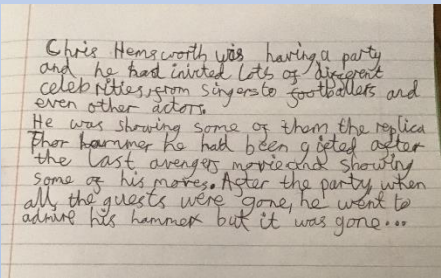 Chris Hemsworth was having a party
and he had inivted lots of different
celebrities, from singers to footballers and
even other actors.
He was showing some of them the replica
Thor hammer he had been gifted after
the last avengers movie and showing
some of his moves. After the party when
all the guests were gone, he went to
admire his hammer but it was gone...